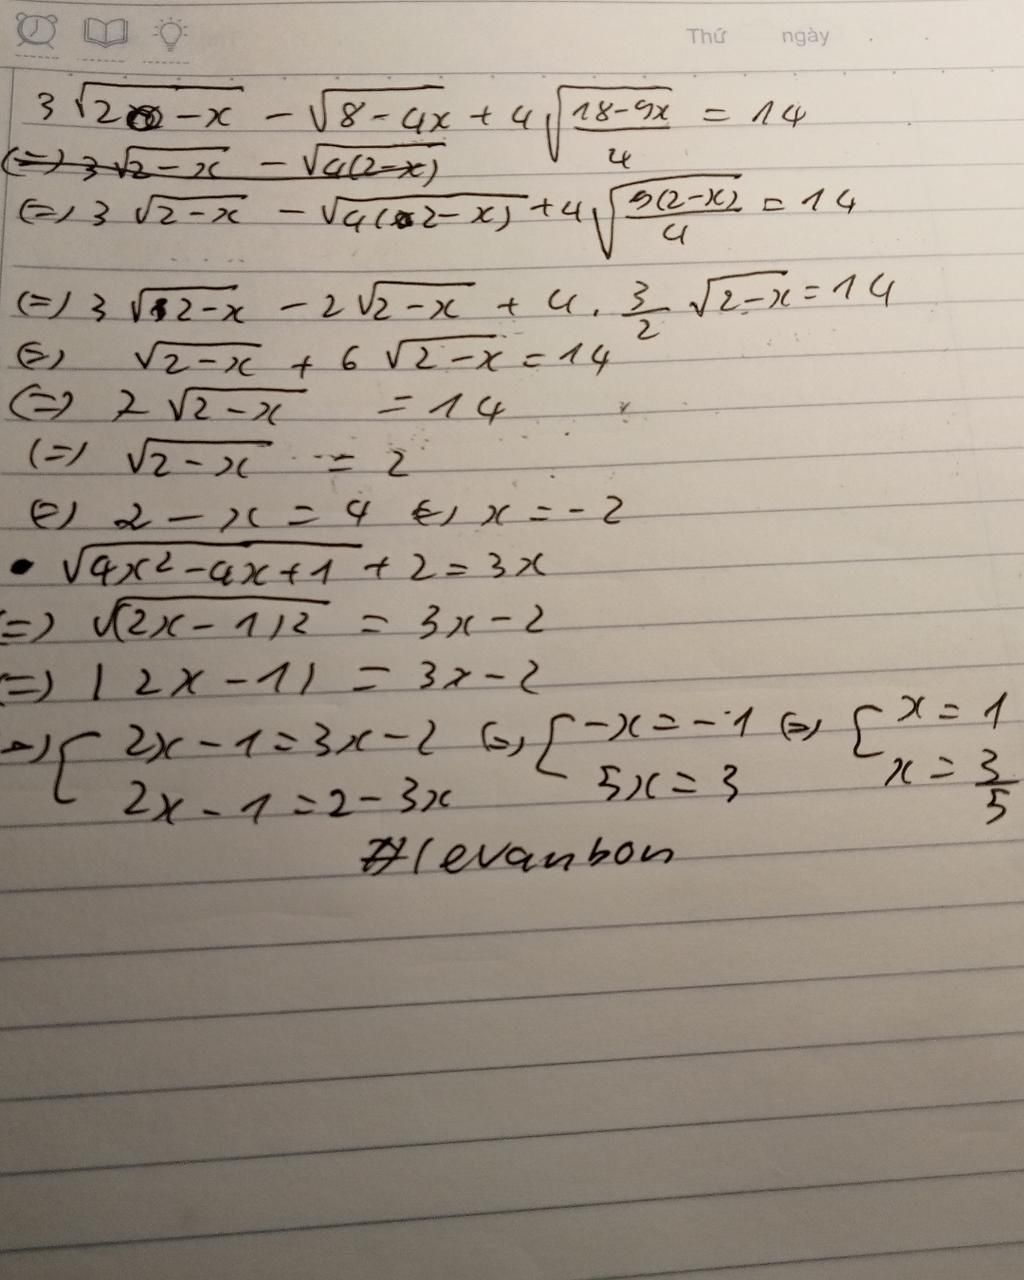 Thứ ngày
3√(2-x) - √(8-4x) + 4√((18-9x)/4) = 14
(=) 3√(2-x) - √(4(2-x))
(=) 3√(2-x) - √(4(2-x)) + 4√(9(2-x)/4) = 14
(=) 3√(2-x) - 2√(2-x) + 4 . 3/2 √(2-x) = 14
(=) √(2-x) + 6√(2-x) = 14
(=) 7√(2-x) = 14
(=) √(2-x) = 2
(=) 2-x = 4 (=) x = -2
• √(4x²-4x+1) + 2 = 3x
(=) √((2x-1)²) = 3x-2
(=) |2x-1| = 3x-2
(=) [ 2x-1 = 3x-2 (=) [ -x = -1 (=) [ x = 1
2x-1 = 2-3x 5x = 3 x = 3/5
#levanbon